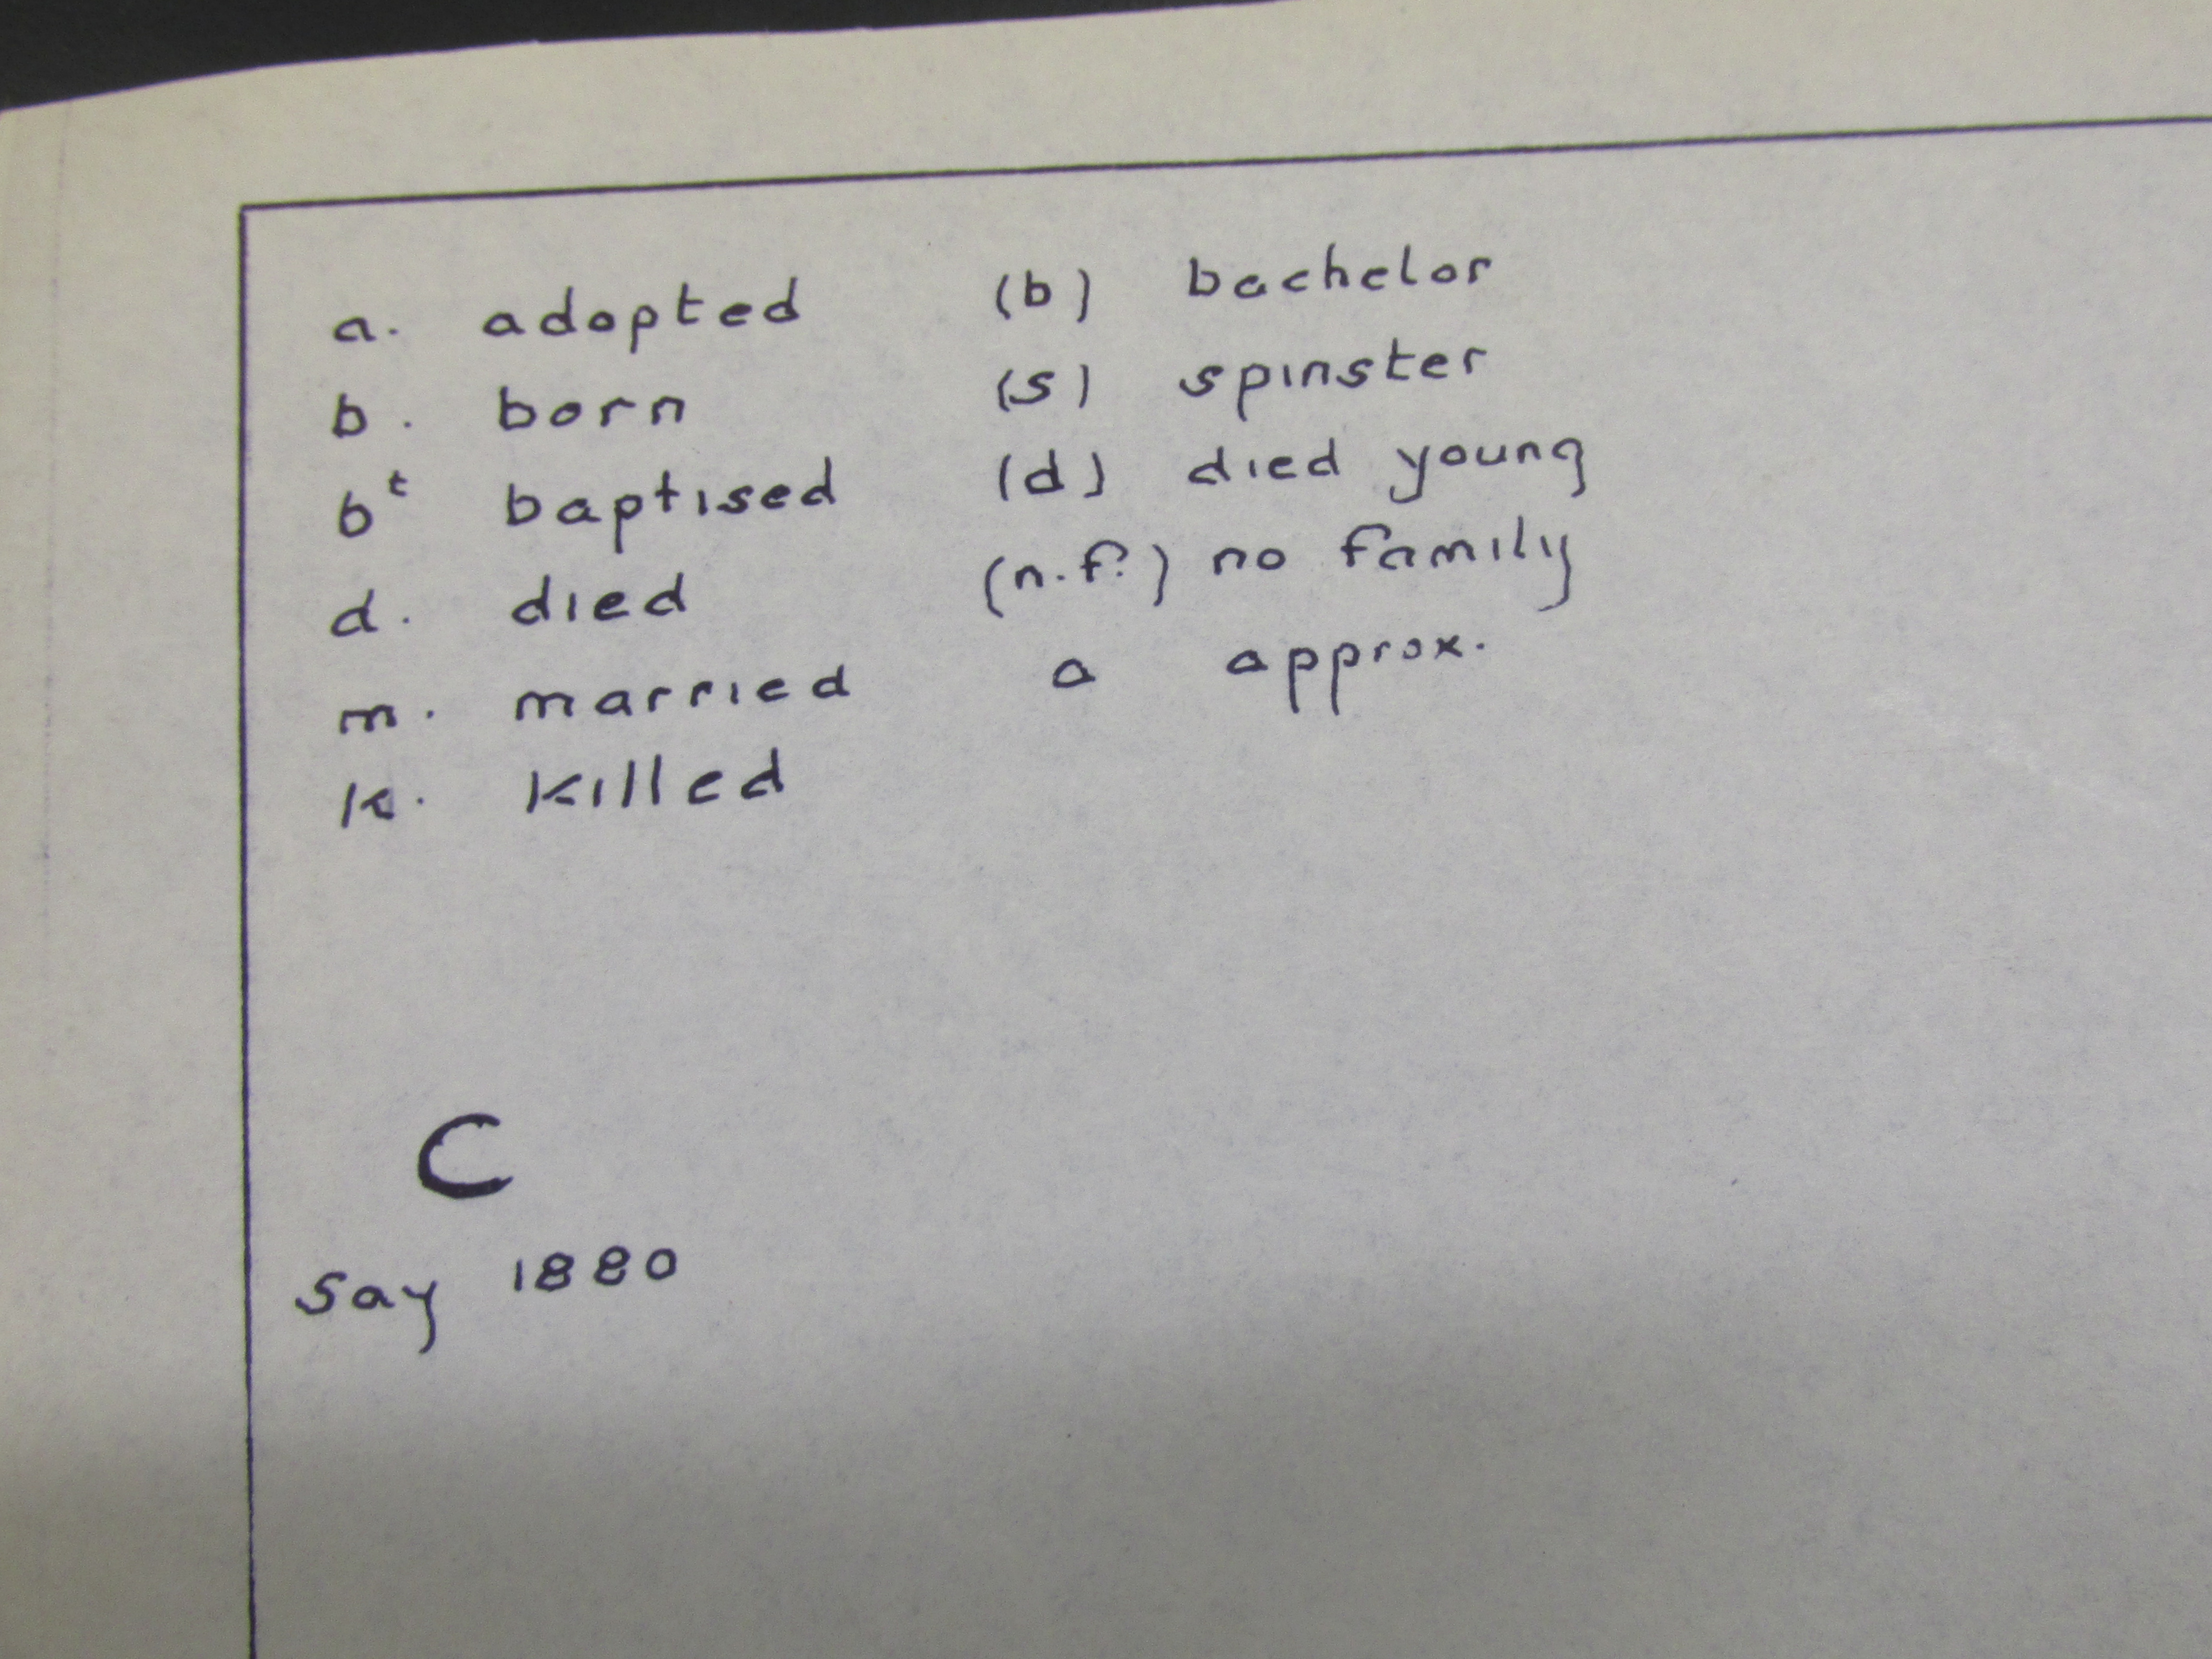 a. adopted (b) bachelor
b. born (s) spinster
bᵗ baptised (d) died young
d. died (n.f.) no family
m. married a approx.
k. killed
C
Say 1880